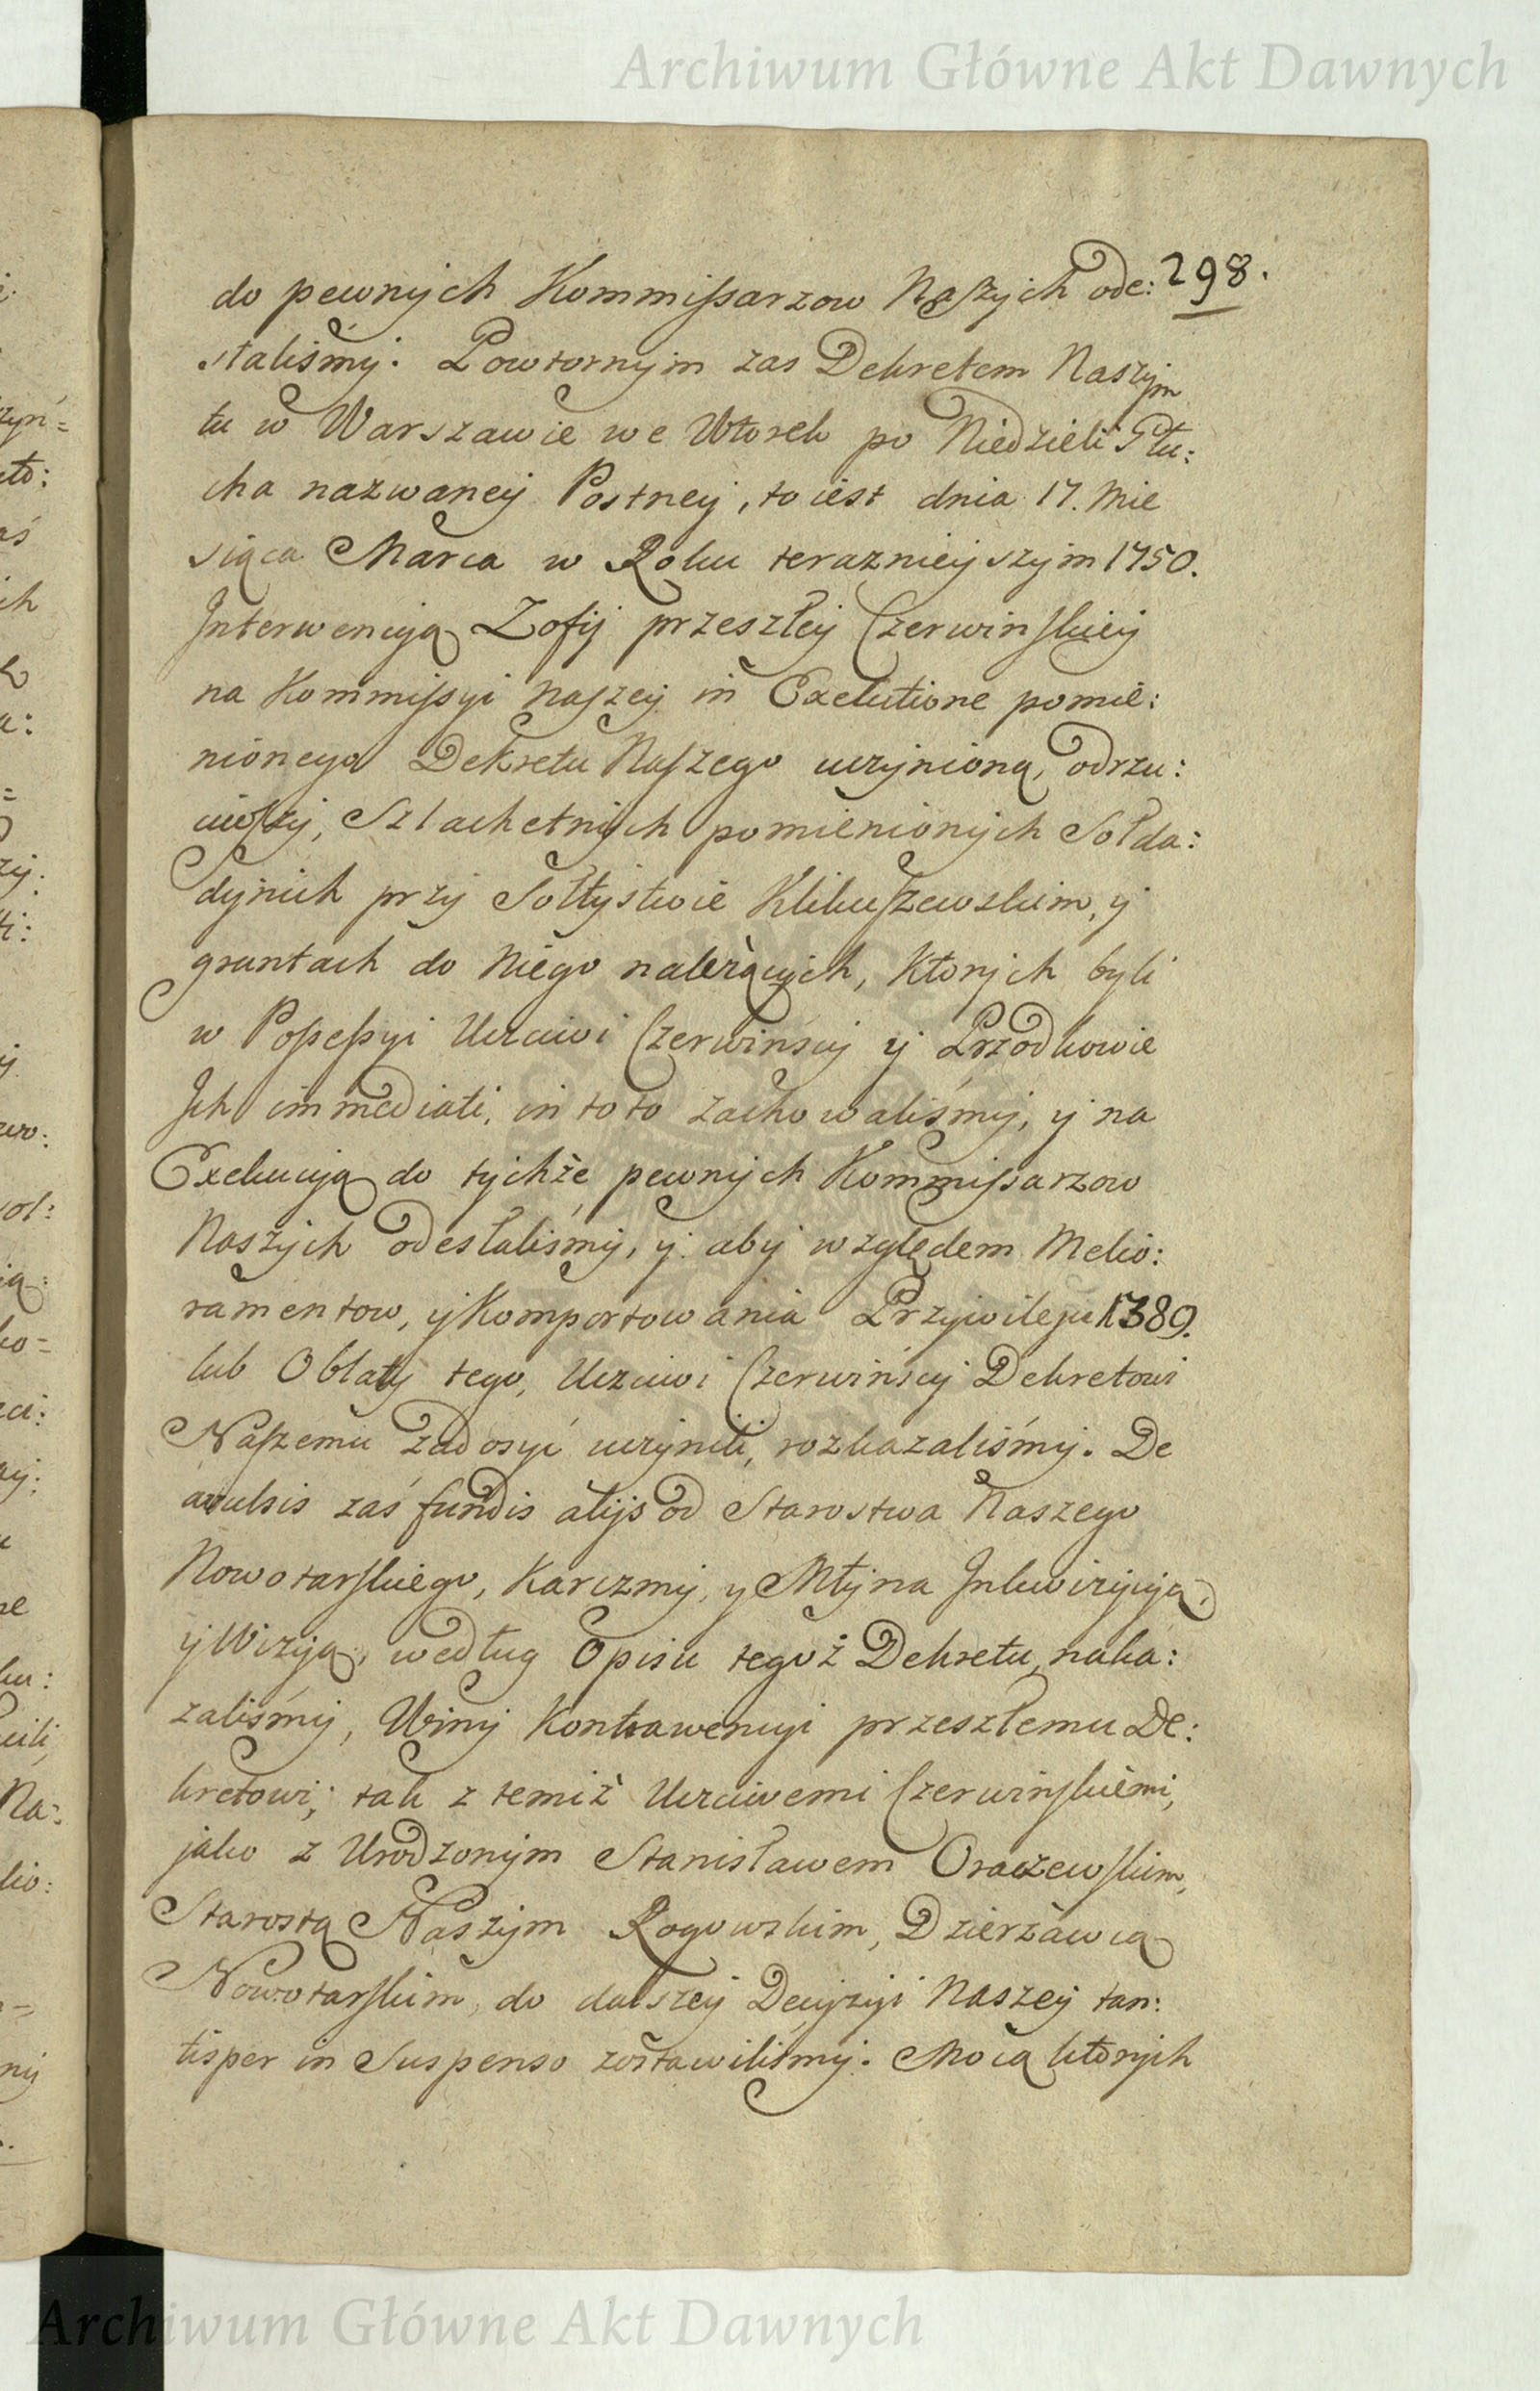 Archiwum Główne Akt Dawnych
298.
do pewnych Kommissarzow Naszych ode:
słalismy. Powtornym zas Dekretem Naszym
tu w Warszawie we Wtorek po Niedzieli Głu:
cha nazwaney Postney, to iest dnia 17. Mie
siąca Marca w Roku teraznieyszym 1750.
Interwencyą Zofij przeszłey Czerwinskiey
na Kommissyi Naszey in Executione pomie:
nionego Dekretu Naszego uczynioną, odrzu:
ciwszy, Szlachetnych pomienionych Sołda:
dynich przy Sołtystwie Klikuszewskim, y
gruntach do niego należących, Ktorych byli
w Possessyi Uczciwi Czerwinscy y Przodkowie
Ich immediati, in toto zachowaliśmy, y na
Exekucyą do tychże pewnych Kommissarzow
Naszych odesłaliśmy, y aby względem Melio:
ramentow, y Komportowania Przywileju 1389.
lub Oblaty tego, Uczciwi Czerwińscy Dekretowi
Naszemu zadosyć uczynili, rozkazaliśmy. De
avulsis zaś fundis alijs od Starostwa Naszego
Nowotarskiego, Karczmy, y Młyna Inkwizycyą,
y Wizyą, według Opisu tegoż Dekretu, naka:
zaliśmy, Winy Kontrawencyi przeszłemu De:
kretowi, tak z temiż Uczciwemi Czerwinskiemi,
jako z Urodzonym Stanisławem Oraczewskim,
Starostą Naszym Rogowskim, Dzierżawcą
Nowotarskim, do dalszey Decyzyi Naszey tan:
tisper in Suspenso zostawiliśmy. Mocą ktorych
Archiwum Główne Akt Dawnych